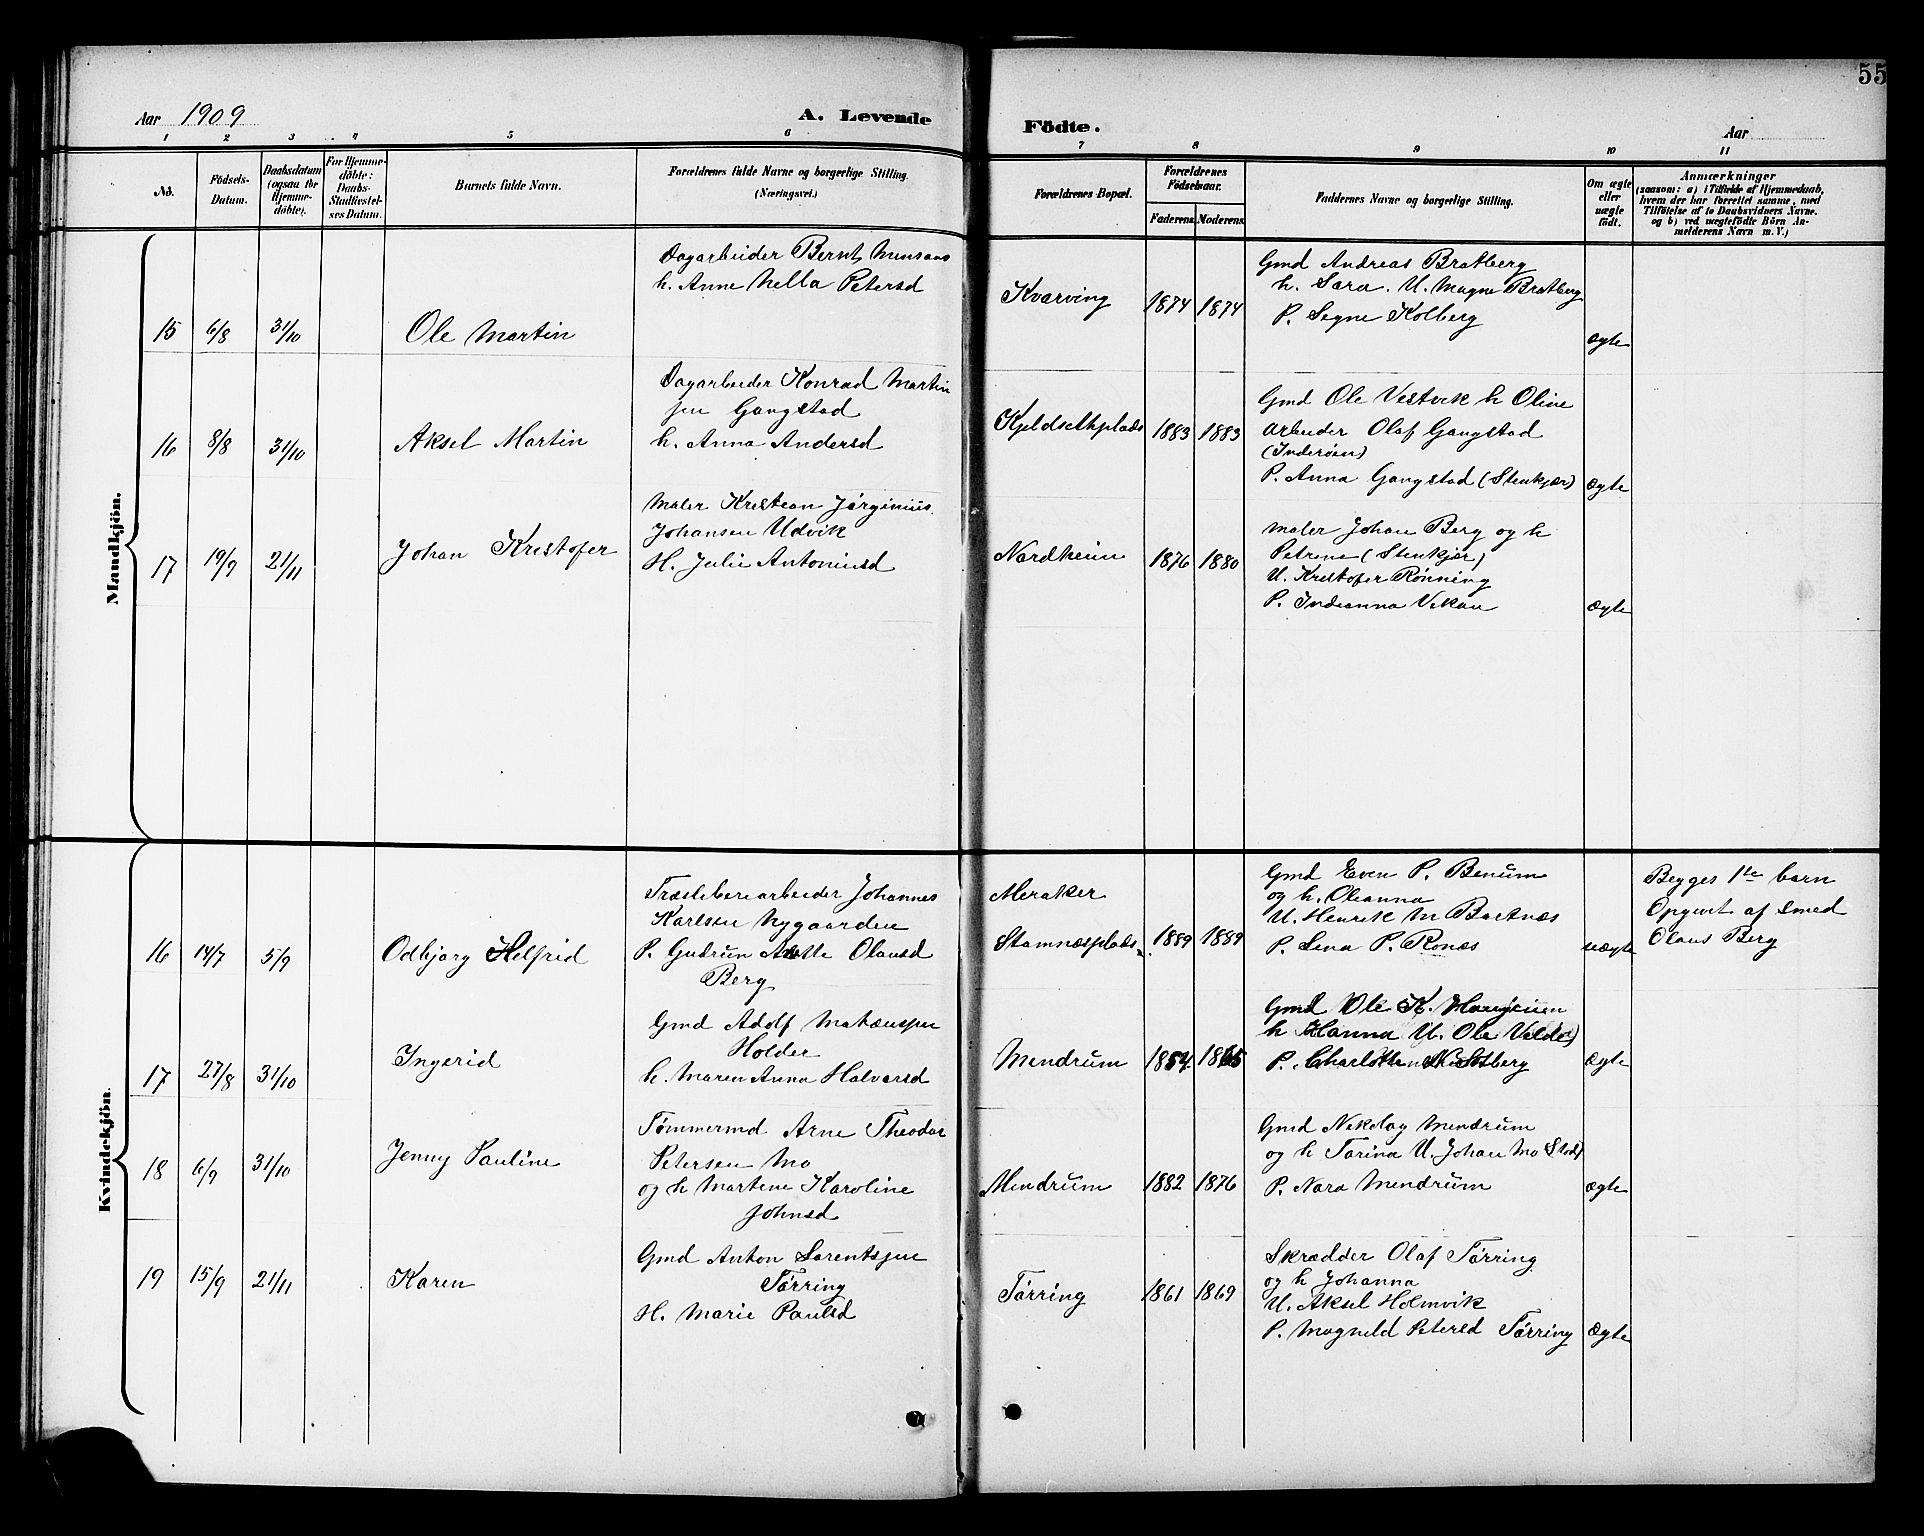 55
Aar 1909
A. Levende
Födte.
Aar
1 2 3 4 5 6
7 8 9 10 11
No.
Födsels-Datum.
Daabsdatum (ogsaa for Hjemme-döbte).
For Hjemme-döbte: Daabs-Stadfæstel-ses Datum.
Barnets fulde Navn.
Forældrenes fulde Navne og borgerlige Stilling.
(Næringsvei.)
Forældrenes Bopæl.
Forældrenes Födselsaar.
Faderens. Moderens.
Faddernes Navne og borgerlige Stilling.
Om ægte eller uægte födt.
Anmærkninger
(saasom: a) i Tilfælde af Hjemmedaab,
hvem der har forrettet samme, med
Tilföielse af to Daabsvidners Navne.
og b) ved uægtefödte Börn An-
melderens Navn m. V.)
Mandkjön.
15 6/8 31/10 Ole Martin
Dagarbeider Bernt Monsans
h. Anne Nella Petersd
Kvarving 1874 1874
Gmd Andreas Bratberg
h. Sara. U. Magne Bratberg
P. Segne Kolberg
ægte
16 8/8 31/10 Aksel Martin
Dagarbeider Konrad Martin
sen Gangstad
h. Anna Andersd
Kjeldsethplads 1883 1883
Gmd Ole Vestvik h Oline
Arbeider Olaf Gangstad
(Inderøen)
P. Anna Gangstad (Stenkjær)
ægte
17 19/9 21/11 Johan Kristofer
Maler Kristian Jørginius
Johansen Udvik
H. Julie Antoniusd
Nordheim 1876 1880
Maler Johan Berg og h
Petrine (Stenkjær)
U. Kristofer Rønning
P. Indianna Vikan
ægte
Kvindekjön.
16 14/7 5/9 Odbjørg Helfrid
Træsliberiarbeider Johannes
Karlsen Nygaarden
P. Gudrun Olausd
Berg
Meraker
Stamnesplads 1889 1889
Gmd Even P. Benum
og h. Oleanna
U. Henrik M Bartnes
P. Lina P. Ronæs
uægte
Begges 1ste barn
Opgivet af smed
Olaus Berg
17 27/8 31/10 Ingerid
Gmd Adolf Matæussen
Holder
h. Maren Anna Halvorsd
Mendrum 1854 1865
Gmd Ole K.
h Hanna U. Ole
P. Charlotte
ægte
18 6/9 31/10 Jenny Pauline
Tømmermd Arne Theodor
Petersen Mo
og h Martine Karoline
Johnsd
Mendrum 1882 1876
Gmd Nikolay Mendrum
og h Tørina U. Johan Mo Stod)
P. Nora Mendrum
ægte
19 15/9 21/11 Karen
Gmd Anton Sørentsen
Tørring
H. Marie Paulsd
Tørring 1861 1869
Skrædder Olaf Tørring
og h Johanna
U. Aksel Holmvik
P. Magnild Petersd Tørring
Ægte